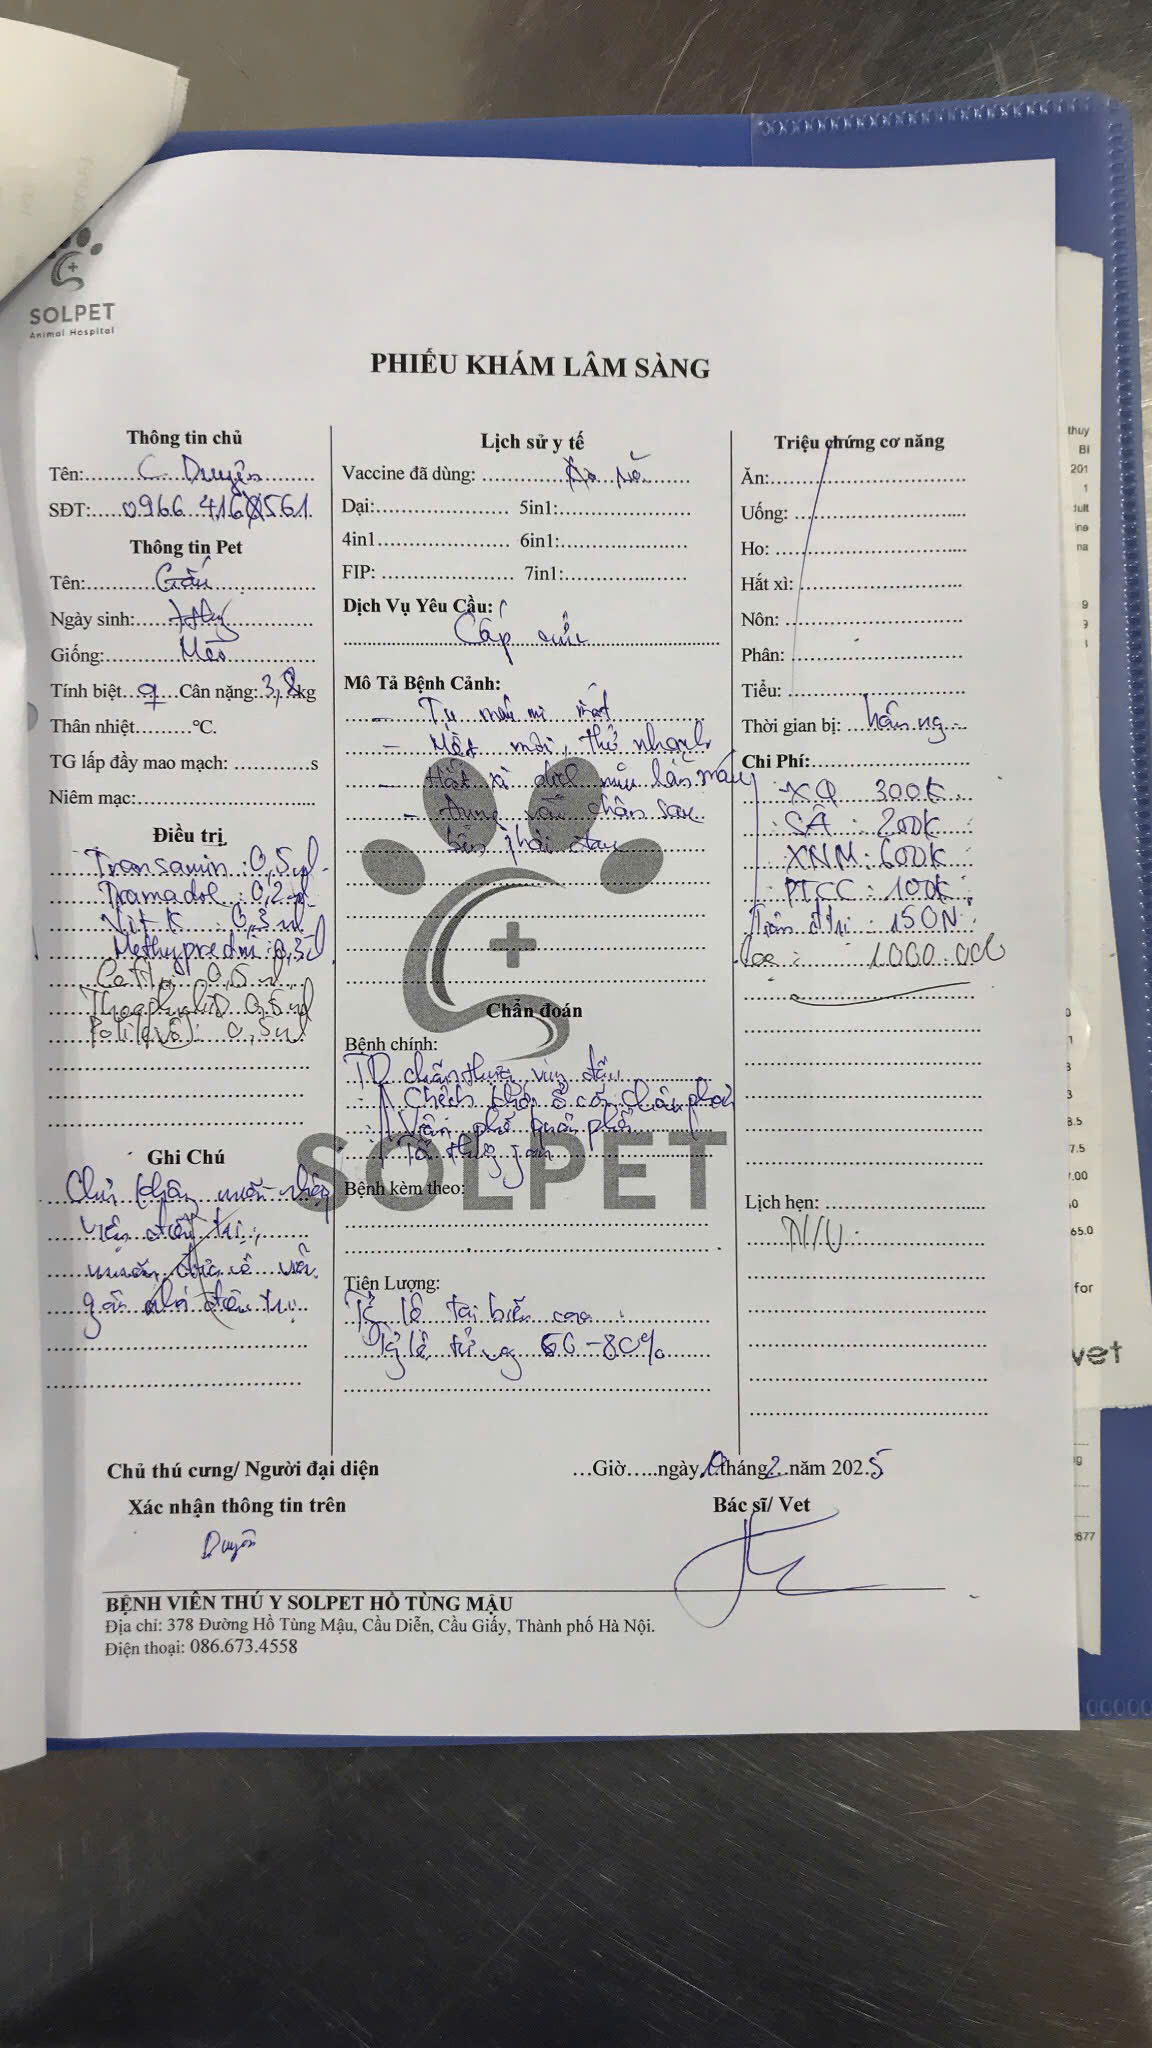 SOLPET
Animal Hospital
PHIẾU KHÁM LÂM SÀNG
Thông tin chủ
Tên: C. Duyên
SĐT: 0966 416 561
Thông tin Pet
Tên: Gấu
Ngày sinh:
Giống: Mèo
Tính biệt ♀ Cân nặng: 3,8kg
Thân nhiệt.........°C.
TG lấp đầy mao mạch: ............s
Niêm mạc:
Điều trị
Transamin : 0,5ml
Tramadol : 0,2ml
Vit K : 0,3ml
Methypredni : 0,3ml
0,5ml
0,5ml
0,5ml
Ghi Chú
Chủ muốn nhập
viện điều trị,
muốn đưa về viện
gần nhà điều trị
Lịch sử y tế
Vaccine đã dùng:
Dại: 5in1:
4in1 6in1:
FIP: 7in1:
Dịch Vụ Yêu Cầu:
Cấp cứu
Mô Tả Bệnh Cảnh:
- Tụ máu mí mắt
- Mệt mỏi, thở nhanh
- Hắt xì dịch mũi lẫn máu
- chân sau
bên phải đau
Chẩn đoán
Bệnh chính:
TD chấn thương vùng đầu
chân phải
Viêm phế quản phổi
Bệnh kèm theo:
Tiên Lượng:
Tỷ lệ tai biến cao
Tỷ lệ tử vg 60-80%
Triệu chứng cơ năng
Ăn:
Uống:
Ho:
Hắt xì:
Nôn:
Phân:
Tiểu:
Thời gian bị:
Chi Phí:
XQ 300K
SÂ : 200K
XNM : 600K
PTCC : 100K
150N
Cọc : 1.000.000
Lịch hẹn:
N/V
Chủ thú cưng/ Người đại diện
Xác nhận thông tin trên
Duyên
...Giờ.....ngày tháng 2 năm 2025
Bác sĩ/ Vet
BỆNH VIÊN THÚ Y SOLPET HỒ TÙNG MẬU
Địa chỉ: 378 Đường Hồ Tùng Mậu, Cầu Diễn, Cầu Giấy, Thành phố Hà Nội.
Điện thoại: 086.673.4558
SOLPET
thuy
BI
201
1
dult
ine
na
9
9
8.5
7.5
.00
65.0
for
vet